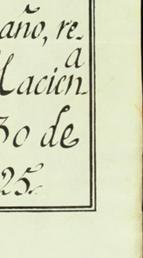 año, re-
a
Hacien
30 de
25.